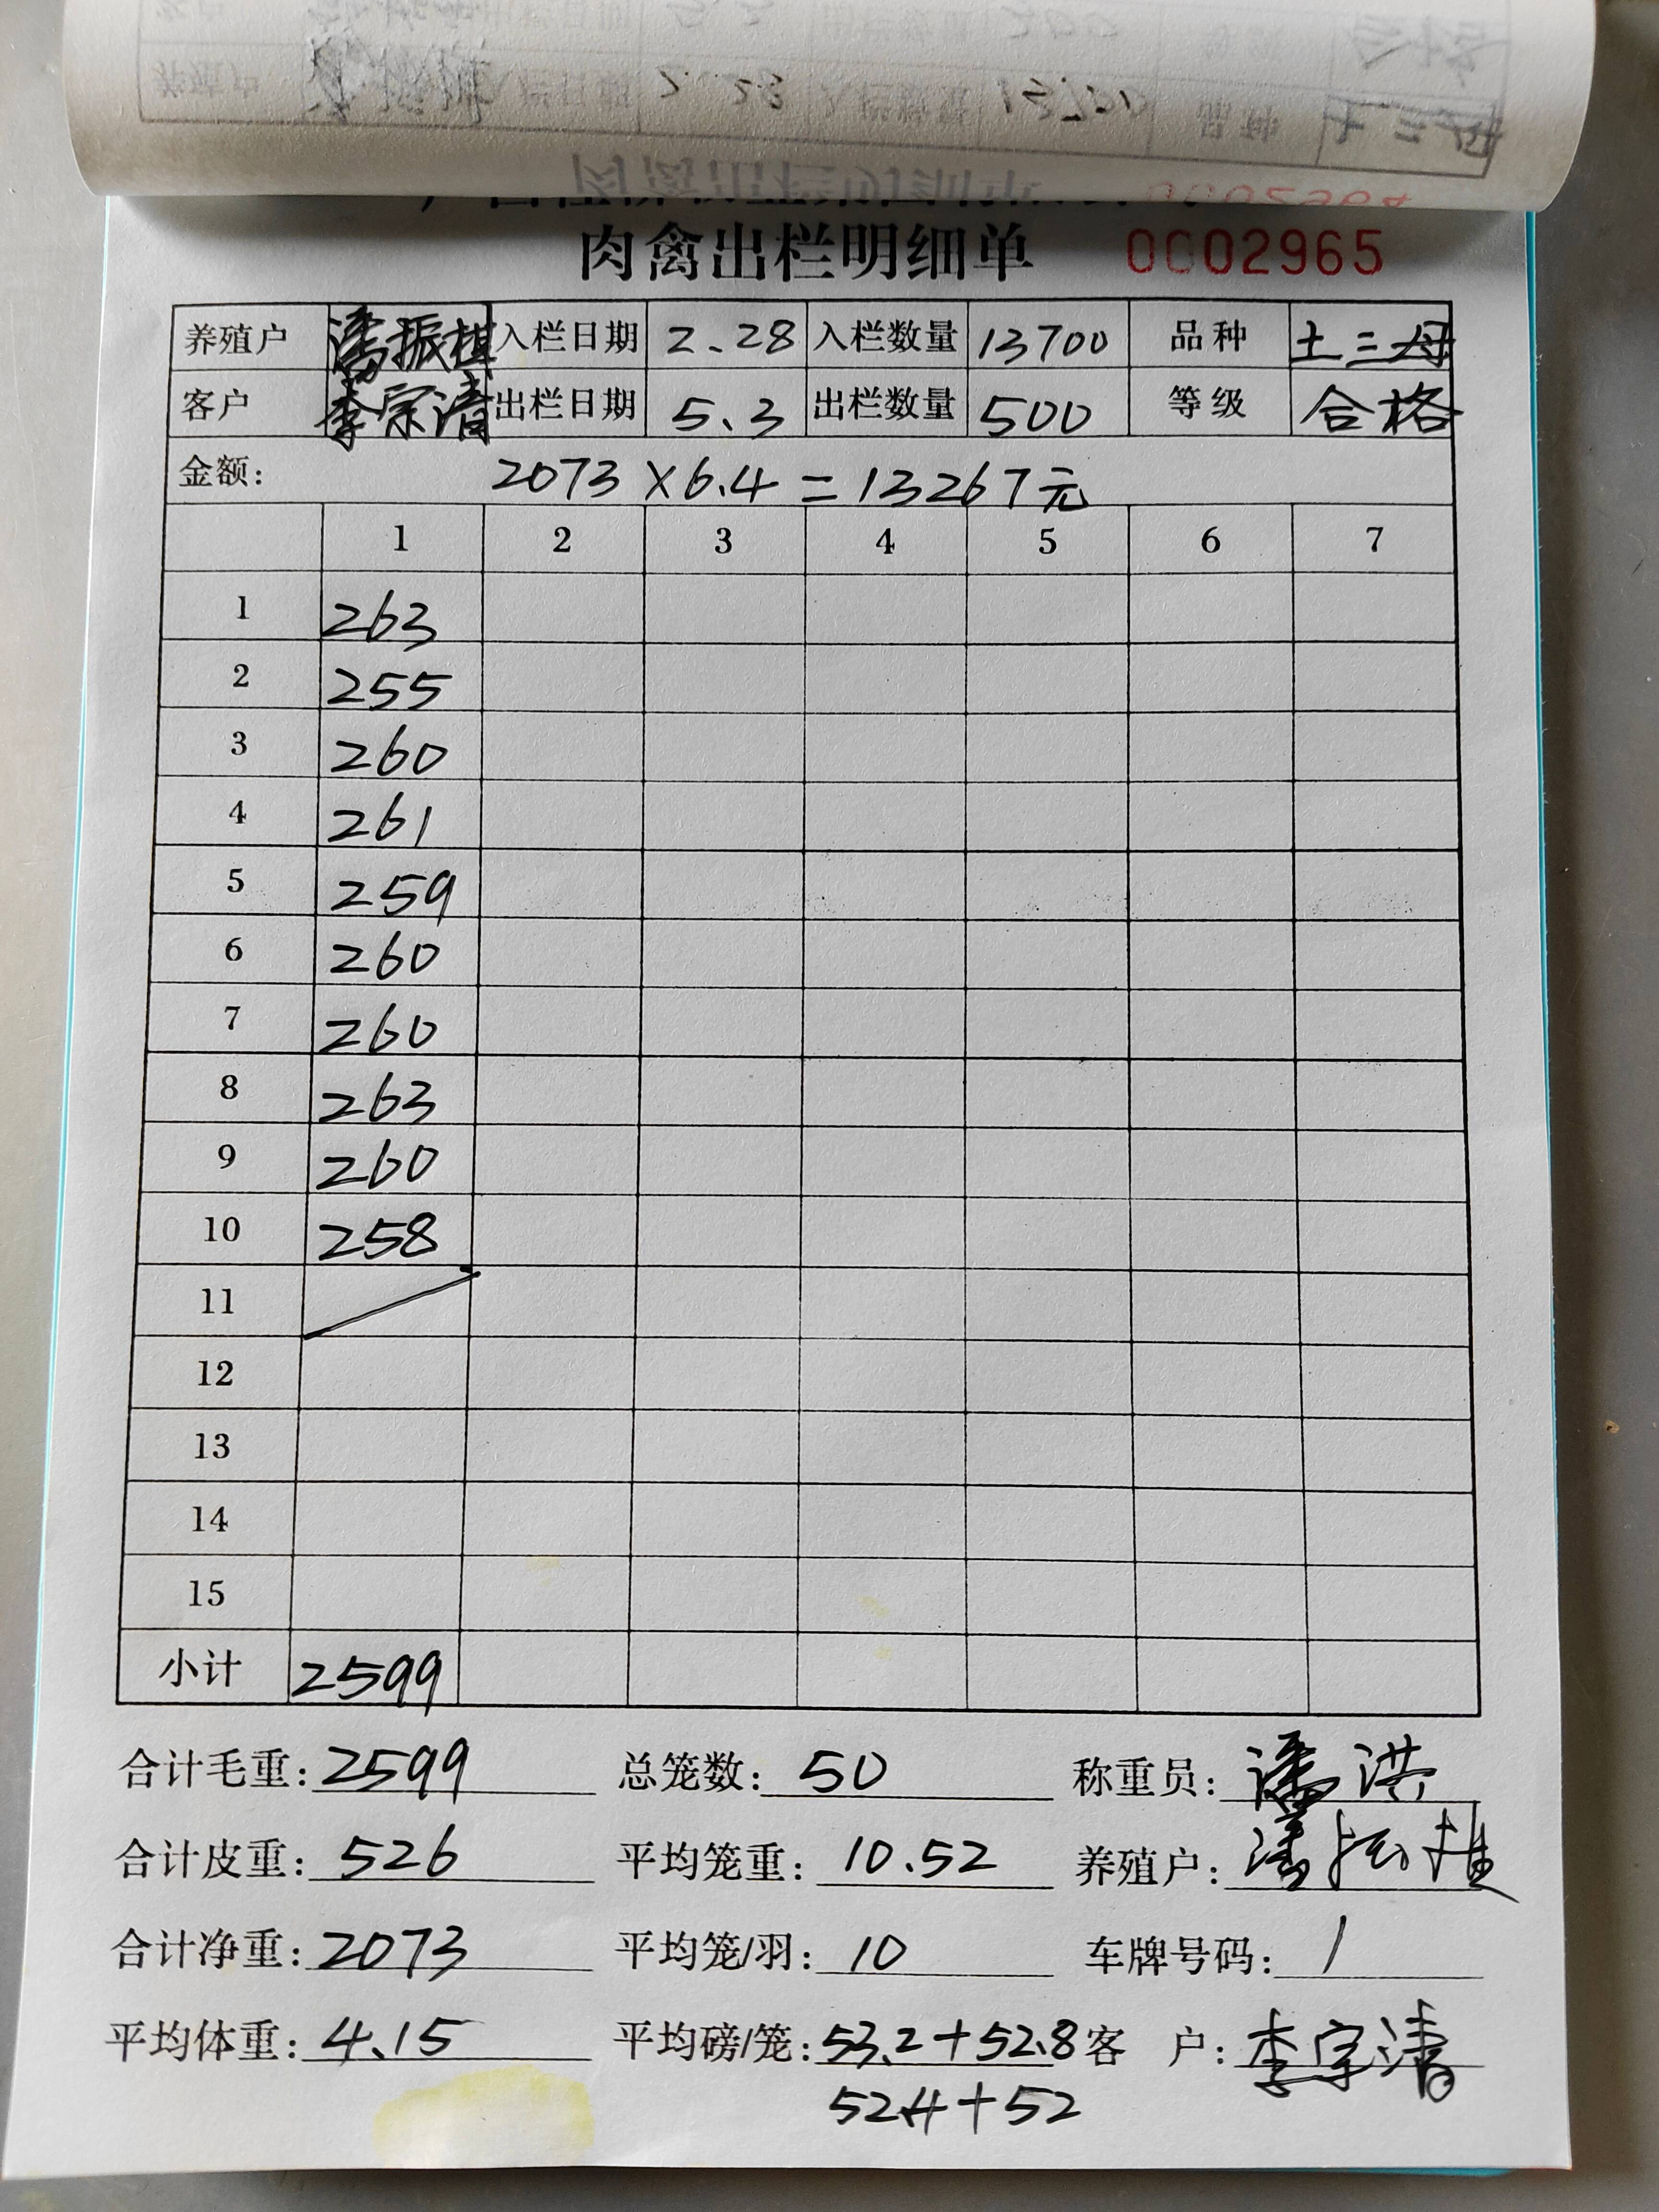 肉禽出栏明细单 0002965
养殖户 潘振桂 入栏日期 2.28 入栏数量 13700 品种 土三母
客户 李宗清 出栏日期 5.3 出栏数量 500 等级 合格
金额: 2073×6.4=13267元
1 2 3 4 5 6 7
1 263
2 255
3 260
4 261
5 259
6 260
7 260
8 263
9 260
10 258
11
12
13
14
15
小计 2599
合计毛重: 2599 总笼数: 50 称重员: 潘洪
合计皮重: 526 平均笼重: 10.52 养殖户: 潘振桂
合计净重: 2073 平均笼/羽: 10 车牌号码: /
平均体重: 4.15 平均磅/笼: 53.2+52.8 客 户: 李宗清
52.4+52